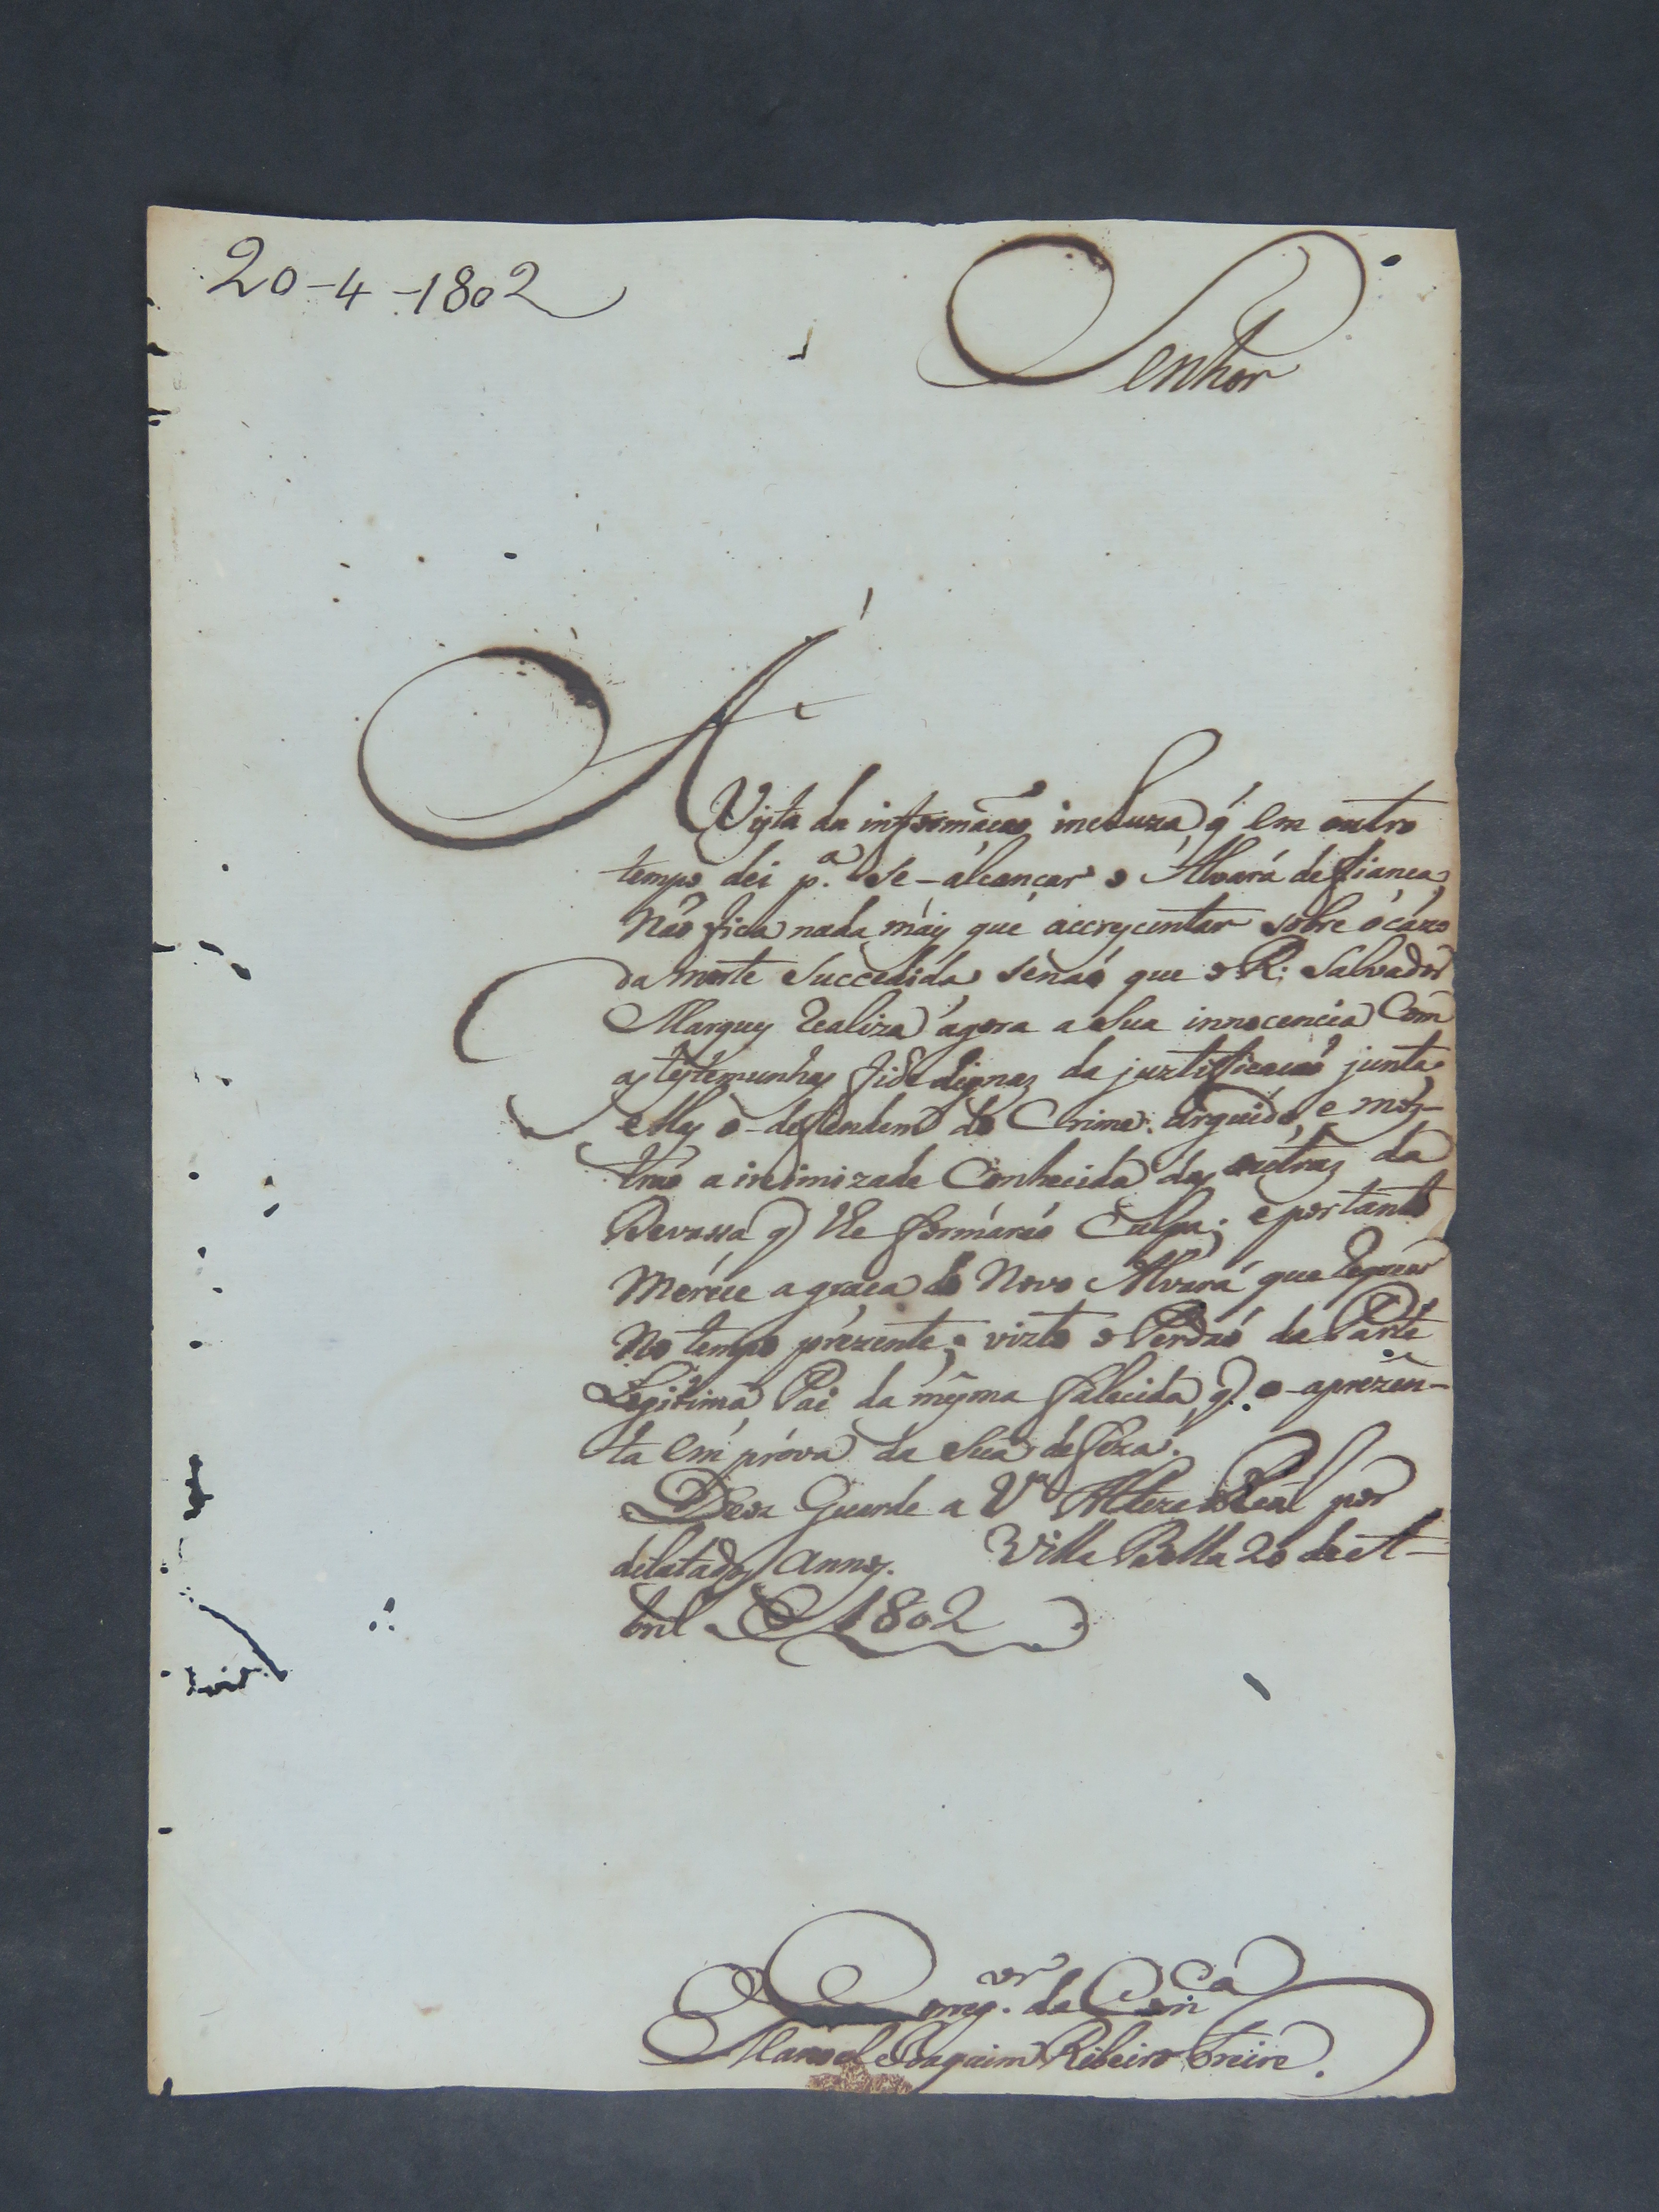 20-4-1802
Senhor
A Vista da informação incluza q' em outro
tempo dei p.ª se-alcançar o Alvará de fiança,
Não fica nada mais que accrescentar sobre o cazo
da morte succedida senaõ que o R. Salvador
Marques realiza agora a sua innocencia Com
as testemunhas fidedignaz da juztificacaõ junta
ellas o-defendem do Crime arguido, e mos-
traõ a inimizade Conhecida das outraz da
Devassa q' lhe formáraõ Culpa; e portanto
Meréce a graça do Novo Alvará que requer
No tempo prezente; vizto o Perdaõ da Parte
Legitima Pai da mesma falecida, q'. o-aprezen-
ta em próva da sua defeza.
Deos Guarde a Vª Alteza Real por
delatados annos. Villa Bella 20 de A-
bril de 1802
O Correg.ºr da Comca
Manoel Joaquim Ribeiro Freire.